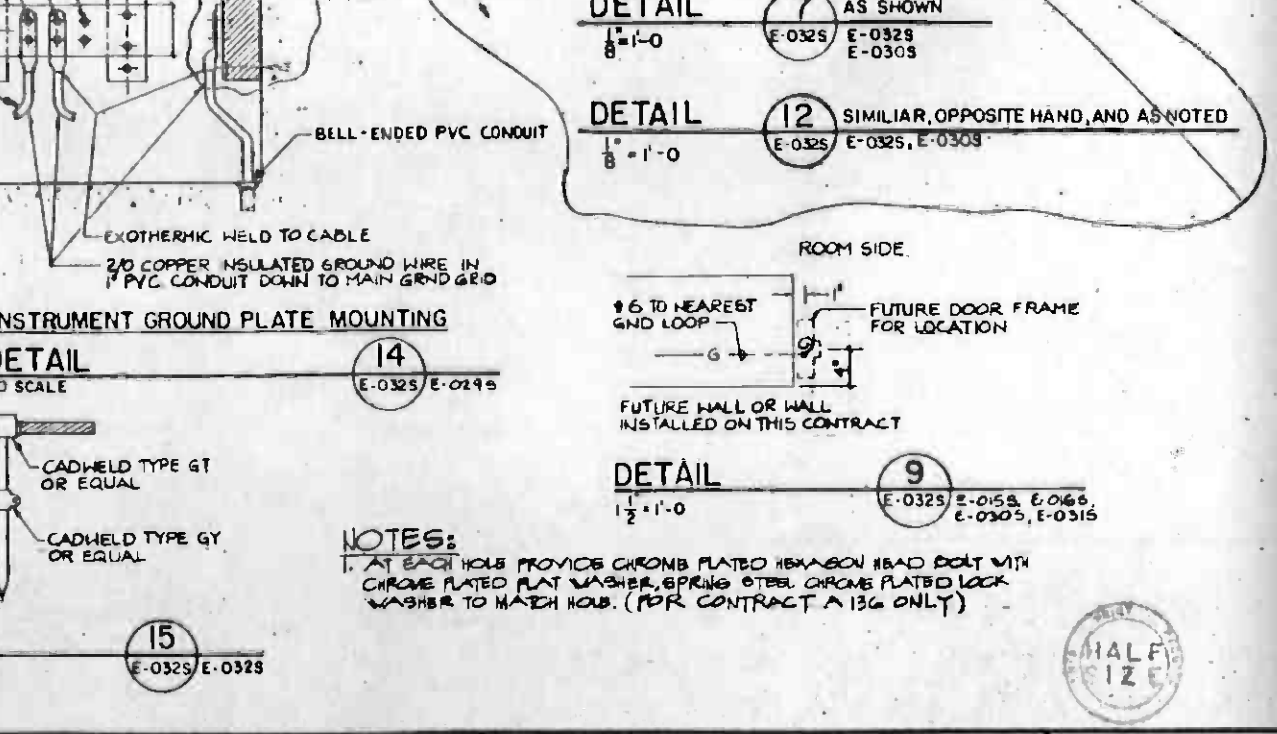 DETAIL
1/8"=1'-0
7
E-032S
AS SHOWN
E-032S
E-030S
DETAIL
1/8"=1'-0
12
E-032S
SIMILIAR, OPPOSITE HAND, AND AS NOTED
E-032S, E-030S
BELL-ENDED PVC CONDUIT
EXOTHERMIC WELD TO CABLE
2/0 COPPER INSULATED GROUND WIRE IN
1" PVC CONDUIT DOWN TO MAIN GRND GRID
INSTRUMENT GROUND PLATE MOUNTING
DETAIL
SCALE
14
E-032S
E-029S
CADWELD TYPE GT
OR EQUAL
CADWELD TYPE GY
OR EQUAL
15
E-032S
E-032S
ROOM SIDE
1"
#6 TO NEAREST
GND LOOP
FUTURE DOOR FRAME
FOR LOCATION
G
4"
FUTURE WALL OR WALL
INSTALLED ON THIS CONTRACT
DETAIL
1 1/2"=1'-0
9
E-032S
E-015S, E-016S,
E-030S, E-031S
NOTES:
1. AT EACH HOLE PROVIDE CHROME PLATED HEXAGON HEAD BOLT WITH
CHROME PLATED FLAT WASHER, SPRING STEEL CHROME PLATED LOCK
WASHER TO MATCH HOLE. (FOR CONTRACT A 136 ONLY)
HALF